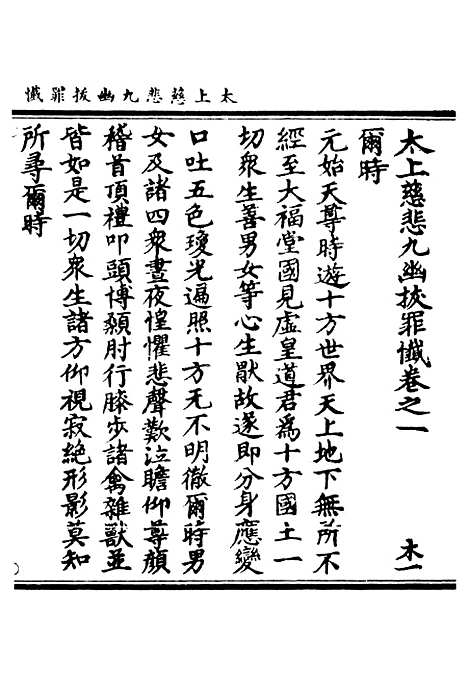 太上慈悲九幽拔罪懺
太上慈悲九幽拔罪懺卷之一　木一
爾時
元始天尊時遊十方世界天上地下無所不
經至大福堂國見虛皇道君爲十方國土一
切衆生善男女等心生厭故遂即分身應變
口吐五色瓊光遍照十方无不明徹爾時男
女及諸四衆晝夜惶懼悲聲歎泣瞻仰尊顔
稽首頂禮叩頭博頰肘行膝步諸禽雜獸並
皆如是一切衆生諸方仰視寂絶形影莫知
所尋爾時